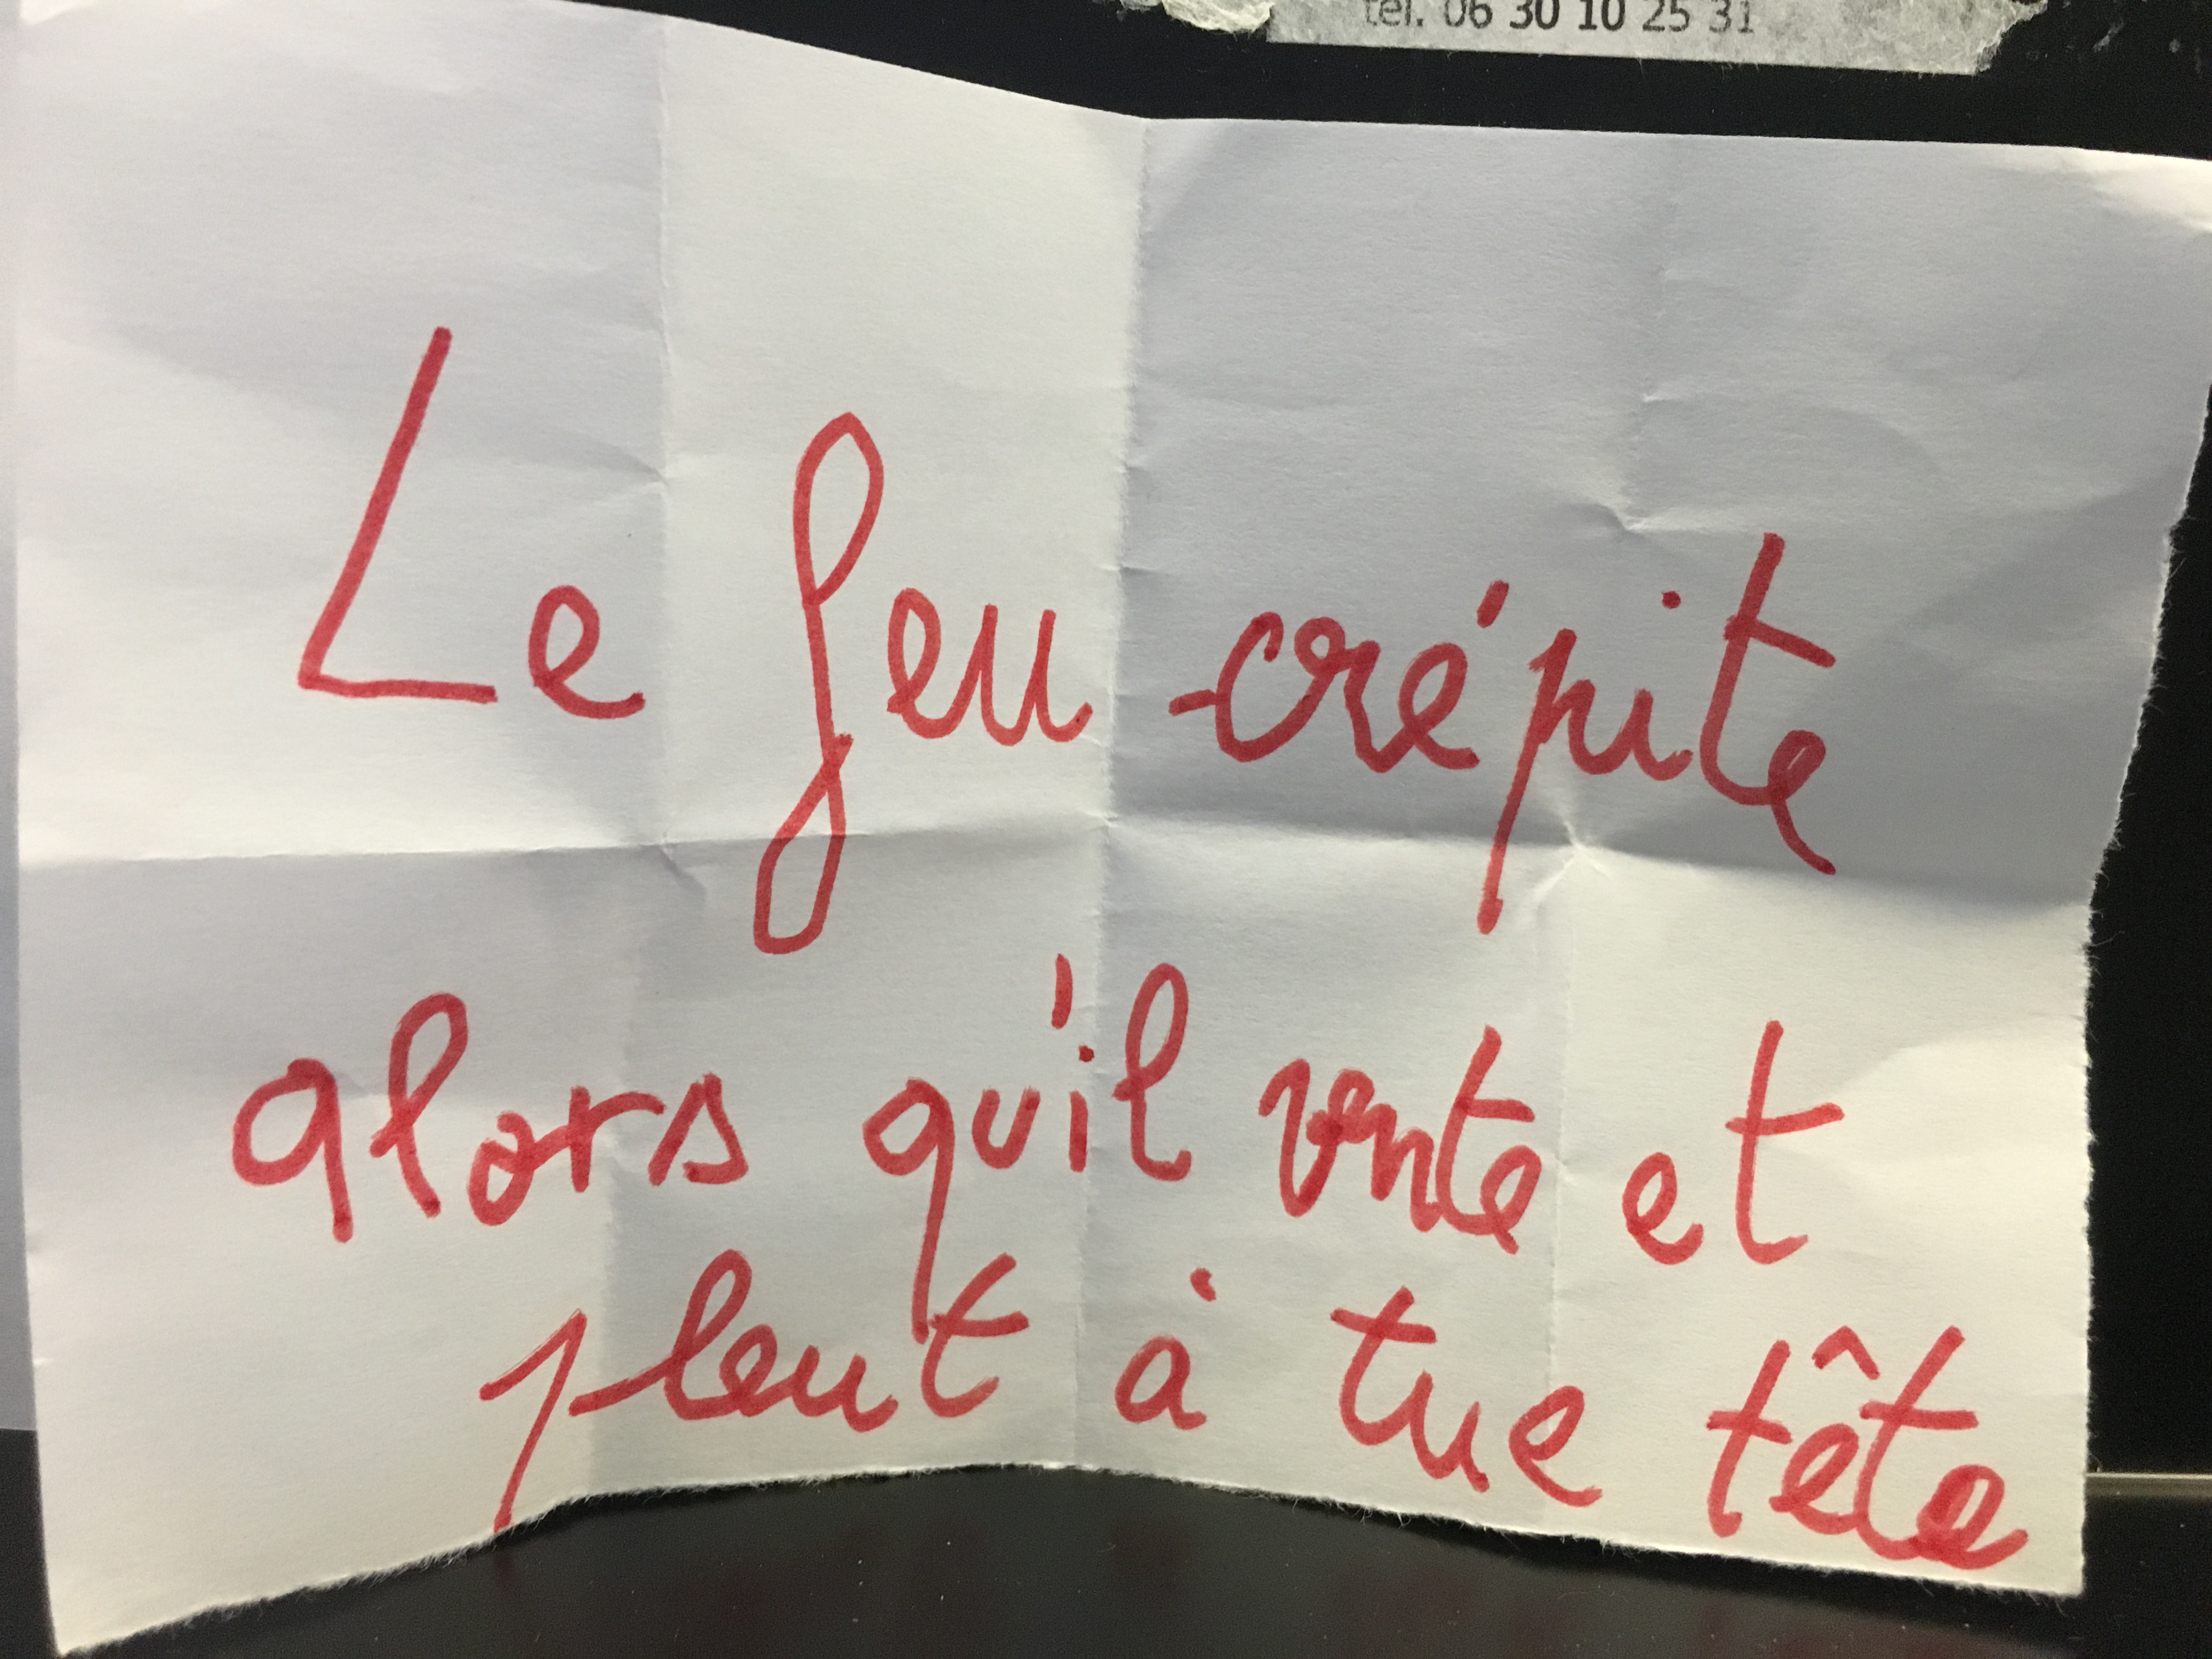 tél. 06 30 10 25 31
Le feu crépite
alors qu'il vente et
pleut à tue tête